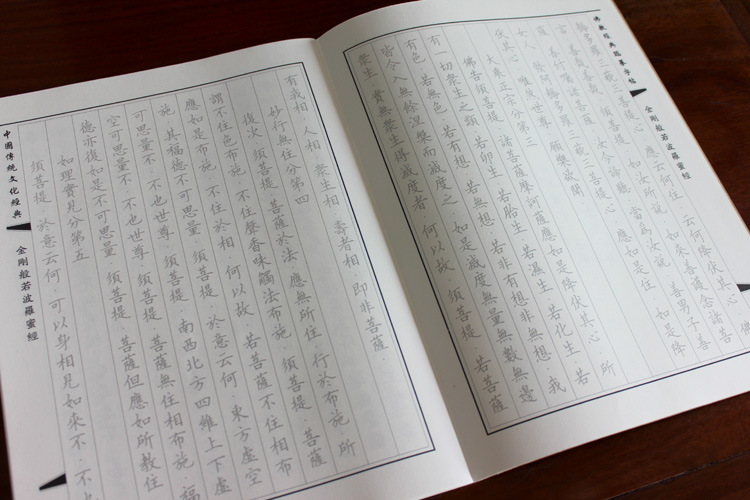 佛教經典臨摹字帖 金剛般若波羅蜜經
耨多羅三藐三菩提心 應云何住 云何降伏其心
言 善哉善哉 須菩提 如汝所說 如來善護念諸菩
薩 善付囑諸菩薩 汝今諦聽 當為汝說 善男子善
女人 發阿耨多羅三藐三菩提心 應如是住 如是降
伏其心 唯然世尊 願樂欲聞
大乘正宗分第三
佛告須菩提 諸菩薩摩訶薩應如是降伏其心 所
有一切眾生之類 若卵生 若胎生 若濕生 若化生 若
有色 若無色 若有想 若無想 若非有想非無想 我
皆令入無餘涅槃而滅度之 如是滅度無量無數無邊
眾生 實無眾生得滅度者 何以故 須菩提 若菩薩
有我相 人相 眾生相 壽者相 即非菩薩
妙行無住分第四
復次 須菩提 菩薩於法 應無所住 行於布施 所
謂不住色布施 不住聲香味觸法布施 須菩提 菩薩
應如是布施 不住於相 何以故 若菩薩不住相布
施 其福德不可思量 須菩提 於意云何 東方虛空
可思量不 不也世尊 須菩提 南西北方四維上下虛
空可思量不 不也世尊 須菩提 菩薩無住相布施 福
德亦復如是不可思量 須菩提 菩薩但應如所教住
如理實見分第五
須菩提 於意云何 可以身相見如來不 不也
中國傳統文化經典 金剛般若波羅蜜經